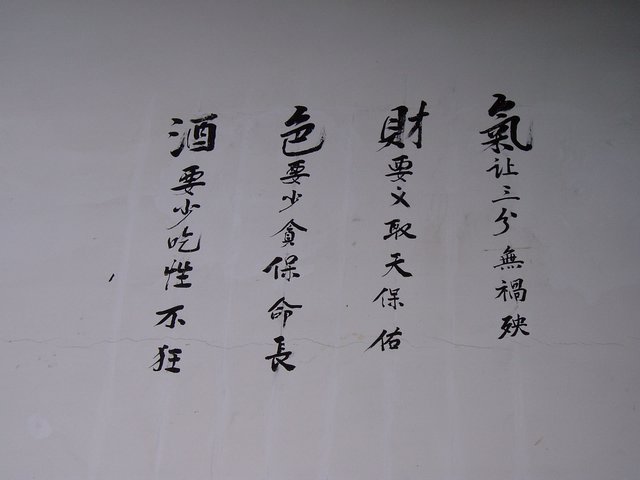 酒要少吃性不狂
色要少貪保命長
財要义取天保佑
氣让三分無禍殃